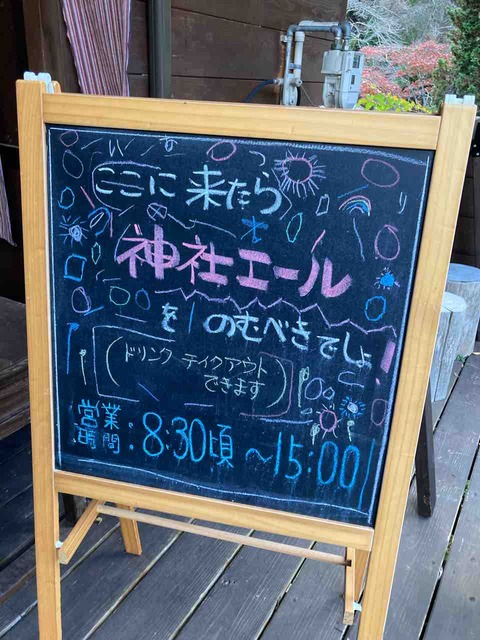 ここに来たら
神社エール
をのむべきでしょ
(ドリンクテイクアウト
できます)
営業
時間:8:30頃~15:00